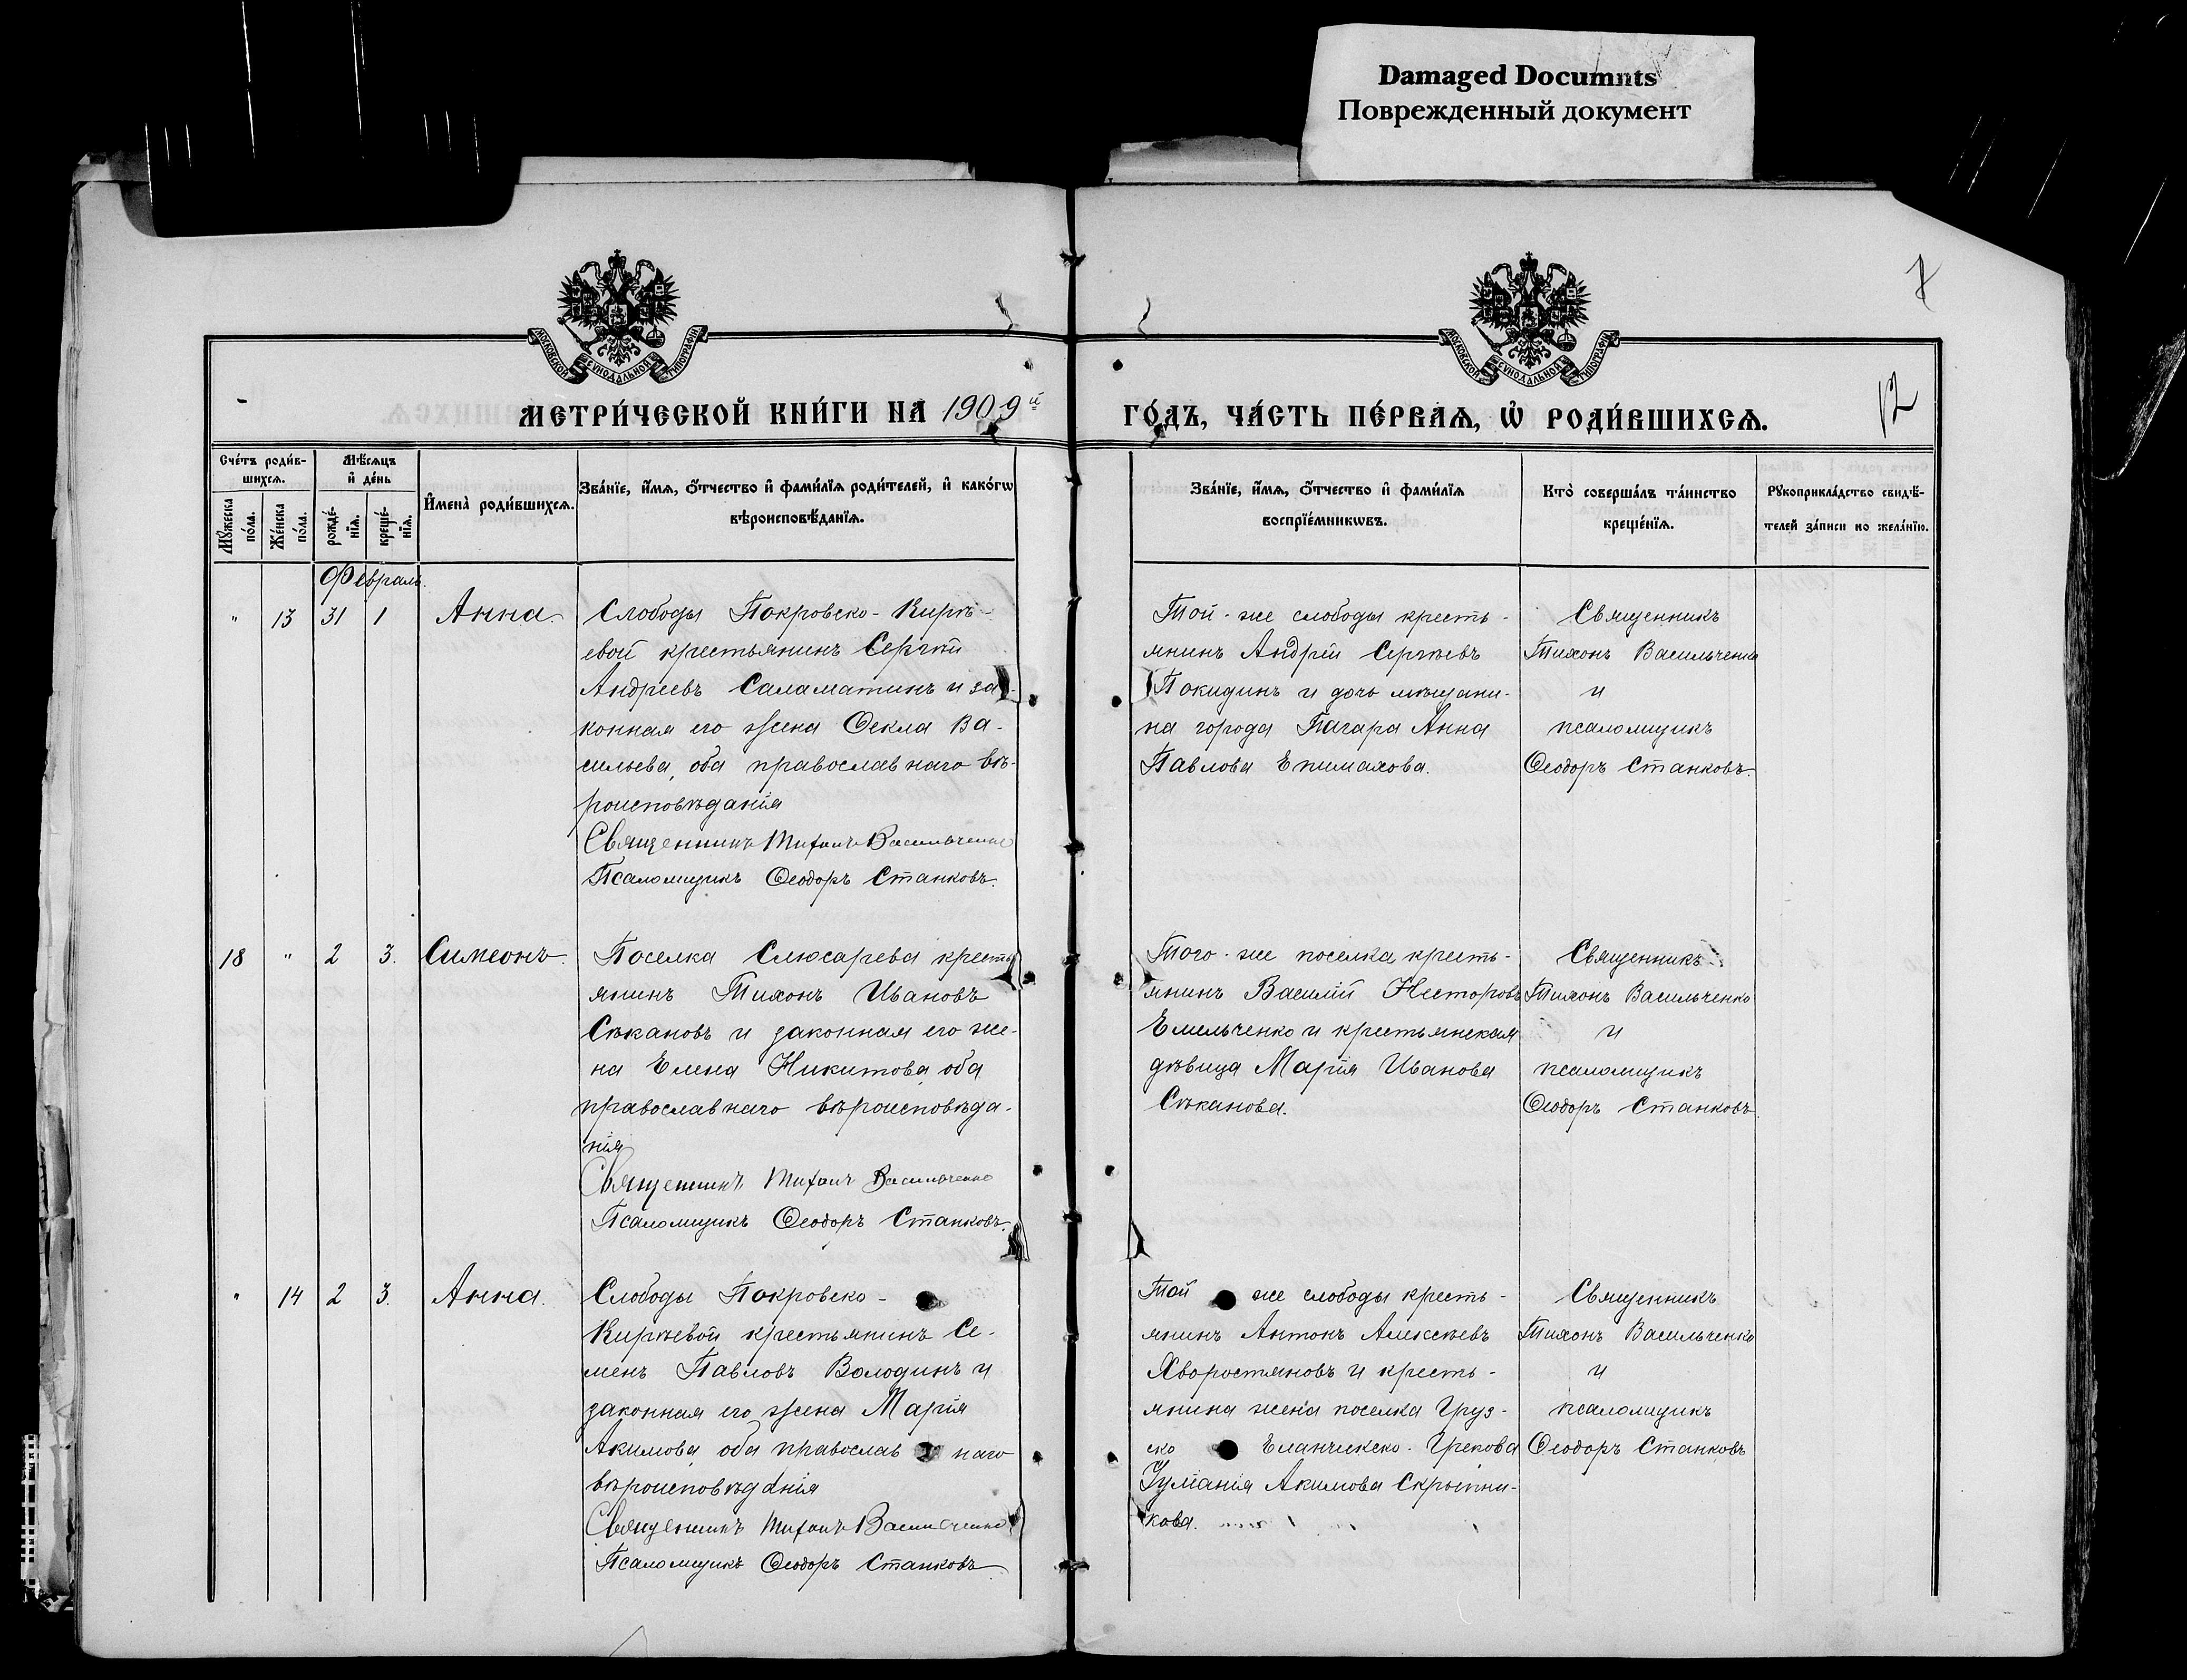 Damaged Documnts
Поврежденный документ
7
12
МОСКОВСКОЙ СѴНОДАЛЬНОЙ ТИПОГРАФІИ
МОСКОВСКОЙ СѴНОДАЛЬНОЙ ТИПОГРАФІИ
МЕТРИ́ЧЕСКОЙ КНИ́ГИ НА 1909й
ГО́ДЪ, ЧА́СТЬ ПЕ́РВАѦ, Ѡ҆ РОДИ́ВШИХСѦ.
Сче́тъ роди́в-
шихсѧ.
Мѣ́сѧцъ
и҆ де́нь
Мꙋ́жеска
по́ла.
Же́нска
по́ла.
рожде́-
нїѧ.
креще́-
нїѧ.
И҆мена̀ роди́вшихсѧ.
Зва́нїе, и҆́мѧ, ѻ҆́тчество и҆ фами́лїѧ роди́телей, и҆ како́гѡ
вѣроисповѣ́данїѧ.
Зва́нїе, и҆́мѧ, ѻ҆́тчество и҆ фами́лїѧ
воспрїе́мникѡвъ.
Кто̀ соверша́лъ та́инство
креще́нїѧ.
Рꙋкоприкла́дство свидѣ́-
телей за́писи по жела́нїю.
Февраль.
" 13 31 1 Анна.
Слободы Покровско-Кирѣ-
евой крестьянинъ Сергѣй
Андреевъ Саламатинъ и за-
конная его жена Ѳекла Ва-
сильева, оба православнаго вѣ-
роисповѣданія
Священникъ Тихонъ Васильченко
Псаломщикъ Ѳеодоръ Станковъ.
Той-же слободы кресть-
янинъ Андрей Сергѣевъ
Покидинъ и дочь мѣщани-
на города Пагара Анна
Павлова Епимахова.
Священникъ
Тихонъ Васильченко
и
псаломщикъ
Ѳеодоръ Станковъ.
18 " 2 3. Симеонъ.
Поселка Слюсарева кресть
янинъ Тихонъ Ивановъ
Сѣкановъ и законная его же-
на Елена Никитова, оба
православнаго вѣроисповѣда-
нія
Священникъ Тихонъ Васильченко
Псаломщикъ Ѳеодоръ Станковъ.
Того-же поселка кресть-
янинъ Василій Несторовъ
Емельченко и крестьянская
дѣвица Марія Иванова
Сѣканова.
Священникъ
Тихонъ Васильченко
и
псаломщикъ
Ѳеодоръ Станковъ
" 14 2 3. Анна.
Слободы Покровско-
Кирѣевой крестьянинъ Се-
менъ Павловъ Володинъ и
законная его жена Марія
Акимова, оба православнаго
вѣроисповѣданія
Священникъ Тихонъ Васильченко
Псаломщикъ Ѳеодоръ Станковъ
Той же слободы кресть-
янинъ Антонъ Алексѣевъ
Хворостяновъ и кресть-
янина жена поселка Груз-
ско Еланчикско-Грекова
Іуліанія Акимова Скрыпни-
кова.
Священникъ
Тихонъ Васильченко
и
псаломщикъ
Ѳеодоръ Станковъ